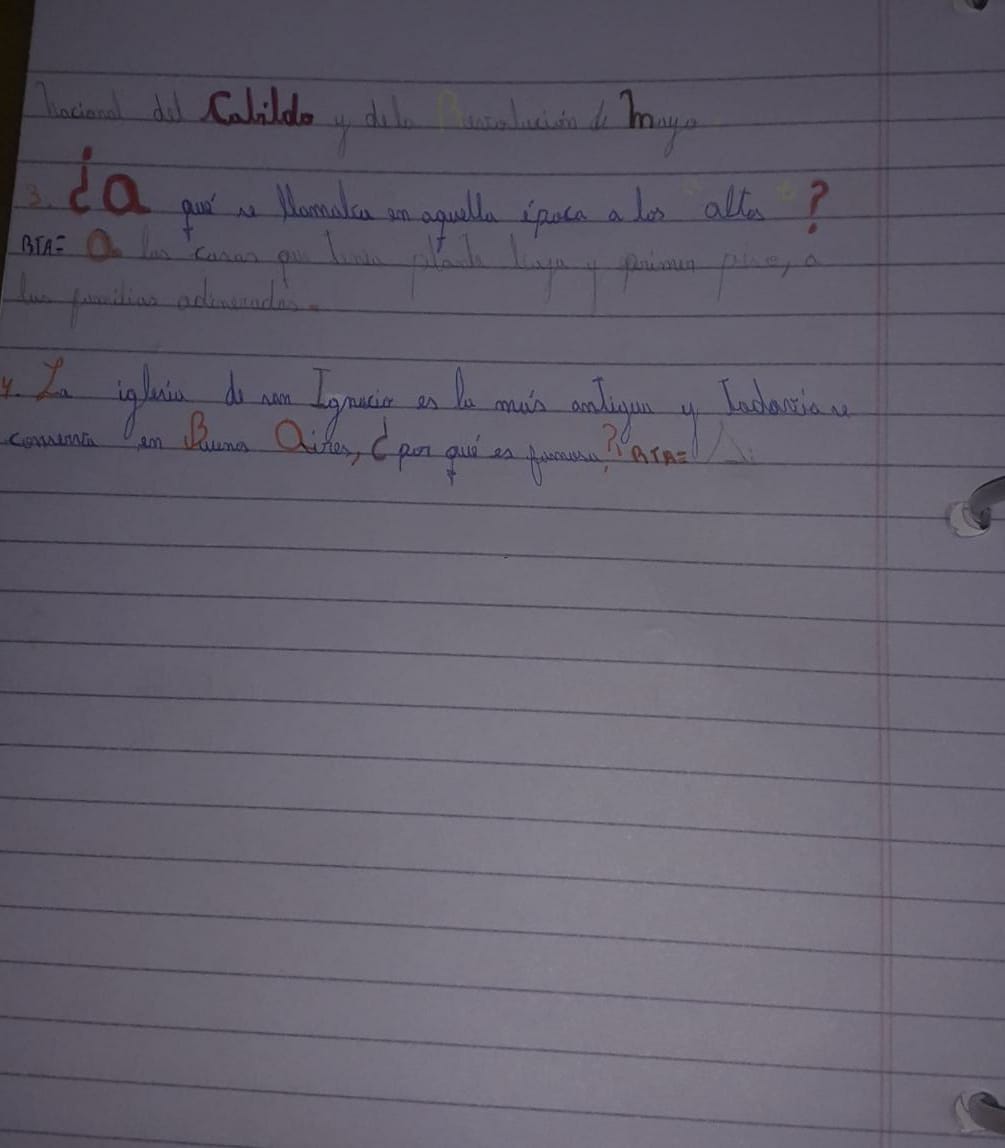 Nacional del Cabildo y de la Revolución de Mayo
3. ¿a qué se llamaba en aquella época a los altos ?
RTA= a las casas que tenia planta baja y primer piso, a
las familias adineradas.
4. La iglesia de san Ignacio es la más antigua y todavia se
conserva en Buenos Aires, ¿por qué es famosa? RTA=